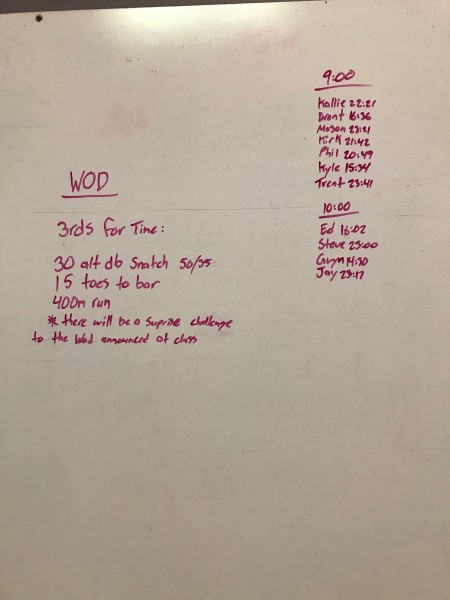 WOD
3rds for Time:
30 alt db Snatch 50/35
15 toes to bar
400m run
* there will be a Suprise challenge
to the Wod announced at class
9:00
Kallie 22:21
Brant 16:36
Mason 23:21
Kirk 21:42
Phil 20:49
Kyle 15:34
Trent 23:41
10:00
Ed 16:02
Steve 23:00
Gwyn 14:30
Jay 23:17